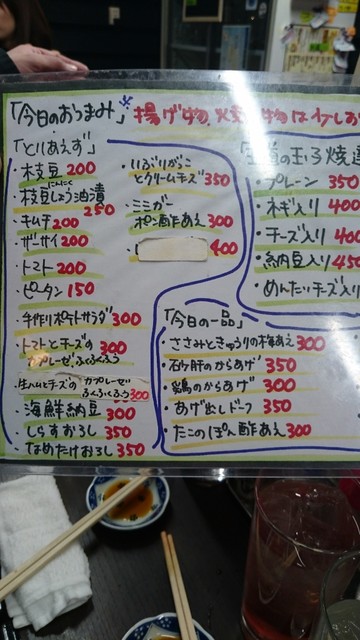 「今日のおつまみ」 揚げ物、
「とりあえず」
・枝豆 200
・枝豆にんにくしょう油漬 250
・キムチ 200
・ザーサイ 200
・トマト 200
・ピータン 150
・手作りポテトサラダ 300
・トマトとチーズの カプレーゼふくろくふう 300
・生ハムとチーズの カプレーゼふくろくふう 300
・海鮮納豆 300
・しらすおろし 350
・なめたけおろし 350
・いぶりがっことクリームチーズ 350
・ミミガーポン酢あえ 300
400
玉子焼
・プレーン 350
・ネギ入り 400
・チーズ入り 400
・納豆入り 450
・めんたいチーズ入り
「今日の一品」
・ささみときゅうりの梅あえ 300
・砂肝のからあげ 350
・鶏のからあげ 300
・あげ出しドーフ 350
・たこのぽん酢あえ 300